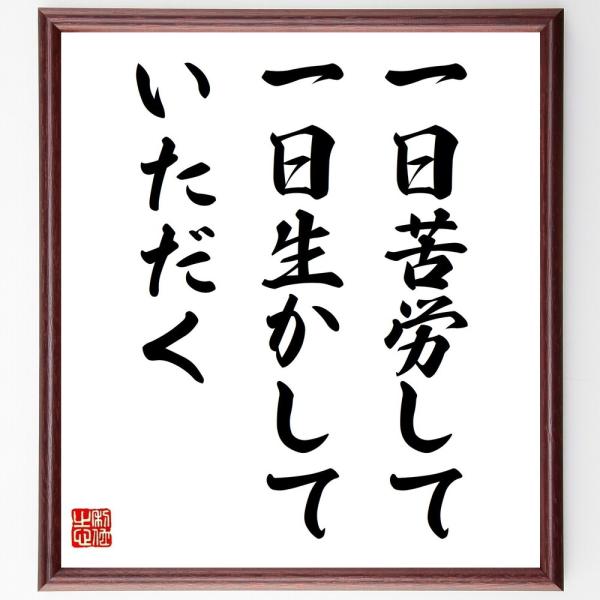 一日苦労して
一日生かして
いただく